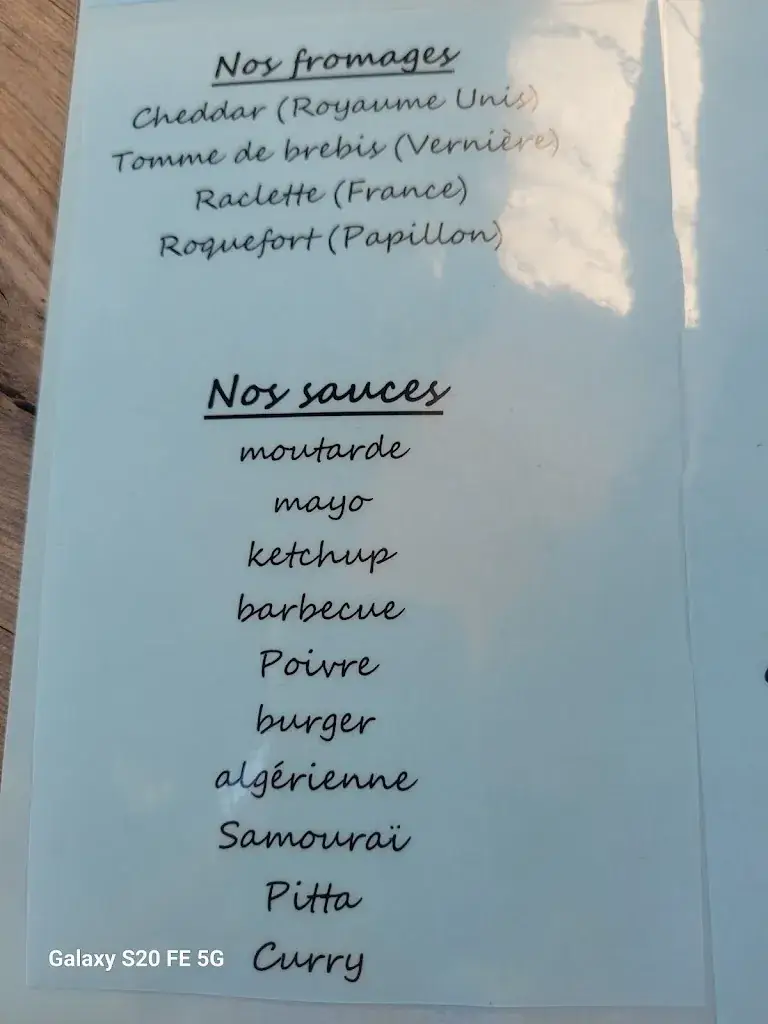 Nos fromages
Cheddar (Royaume Unis)
Tomme de brebis (Vernière)
Raclette (France)
Roquefort (Papillon)
Nos sauces
moutarde
mayo
ketchup
barbecue
Poivre
burger
algérienne
Samouraï
Pitta
Curry
Galaxy S20 FE 5G